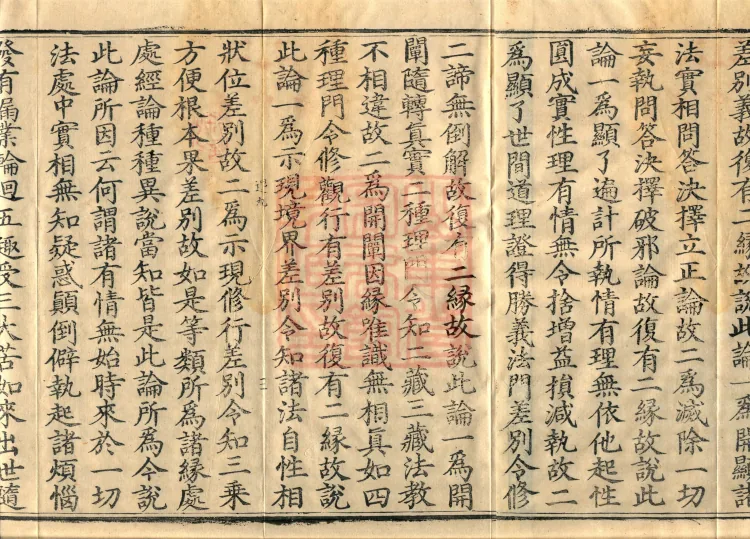 差別義故復有二縁故說此論一爲開顯諸
法實相問答決擇立正論故二爲滅除一切
妄執問答決擇破邪論故復有二縁故說此
論一爲顯了遍計所執情有理無依他起性
圓成實性理有情無令捨增益損減執故二
爲顯了世間道理證得勝義法門差別令修
二諦無倒解故復有二縁故說此論一爲開
闡隨轉真實二種理門令知二藏三藏法教
不相違故二爲開闡因縁唯識無相真如四
種理門令修觀行有差別故復有二縁故說
此論一爲示現境界差別令知諸法自性相
狀位差別故二爲示現修行差別令知三乘
方便根本果差別故如是等類所爲諸縁處
處經論種種異說當知皆是此論所爲今說
此論所因云何謂諸有情無始時來於一切
法處中實相無知疑惑顛倒僻執起諸煩惱
發有漏業輪迴五趣受三大苦如來出世隨